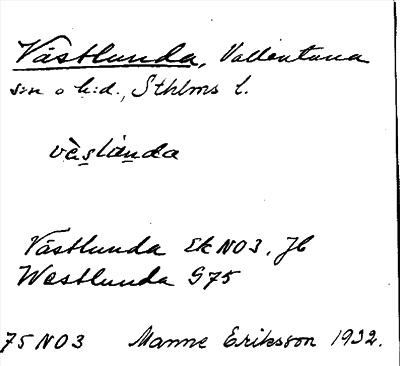 Västlunda, Vallentuna
sn o h:d., Sthlms l.
vä̀slúnda
Västlunda Ek NO3. Jb
Westlunda G75
75 NO3 Manne Eriksson 1932.